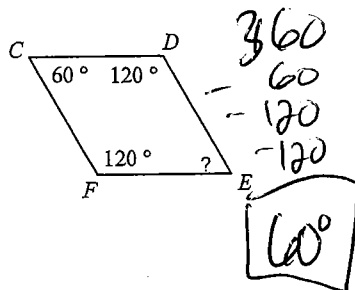 C D
60° 120°
120° ?
F E
360
- 60
- 120
- 120
60°